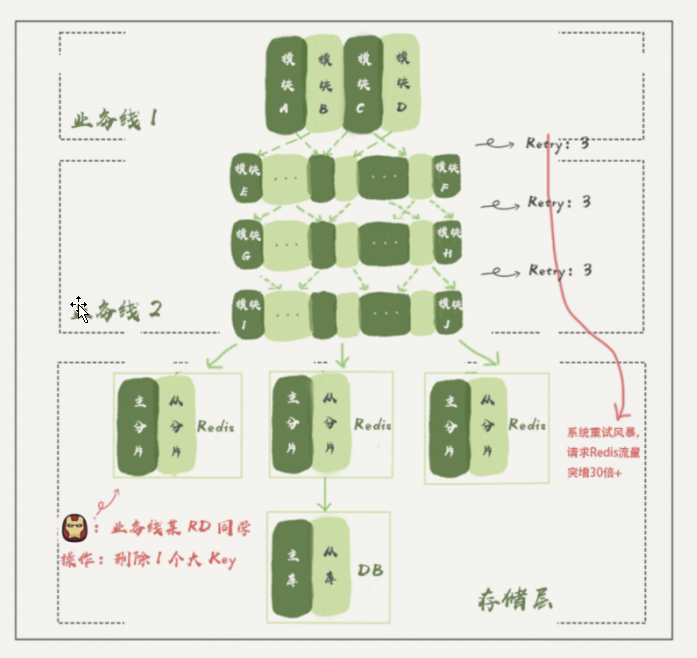 模块A
模块B
模块C
模块D
业务线1
Retry: 3
模块E
...
...
模块F
Retry: 3
模块G
...
...
模块H
Retry: 3
业务线2
模块I
...
...
模块J
主分片
从分片
Redis
主分片
从分片
Redis
主分片
从分片
Redis
系统重试风暴,
请求Redis流量
突增30倍+
: 业务线某 RD 同学
操作: 删除1个大 Key
主库
从库
DB
存储层